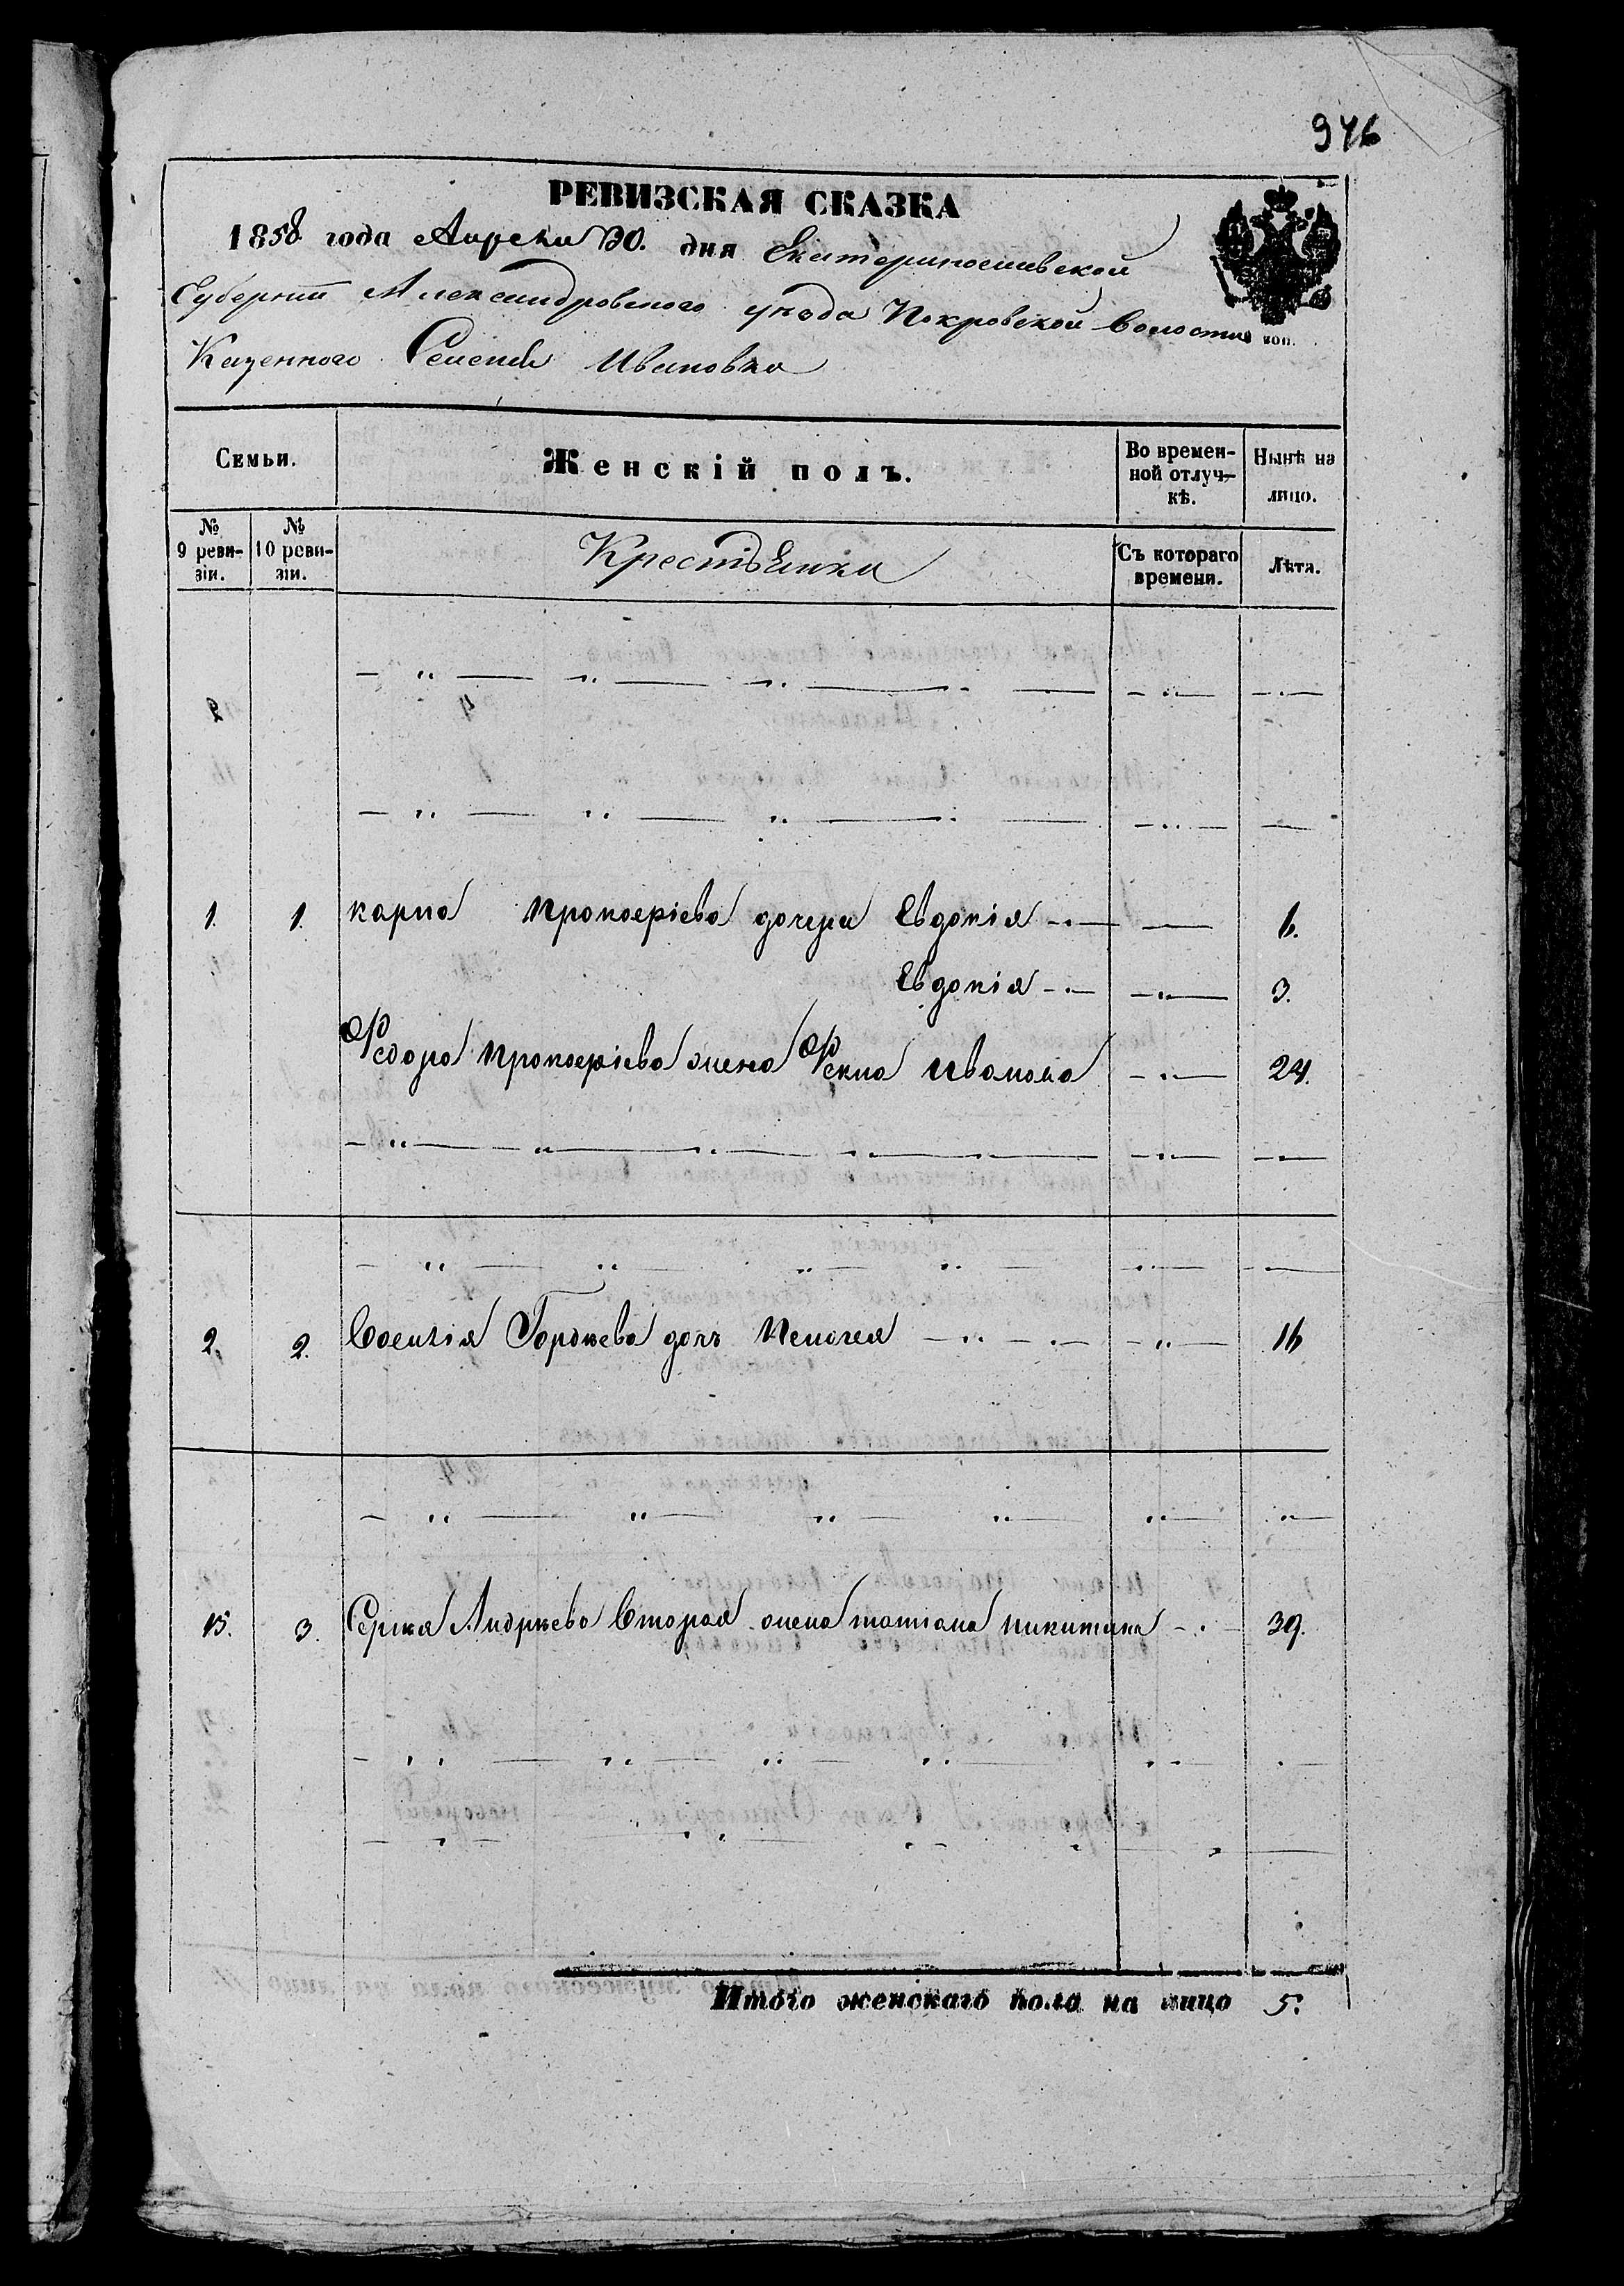 976
РЕВИЗСКАЯ СКАЗКА
1858 года Апреля 30. дня Екатеринославской
Губернии Александровского уезда Покровской волости коп.
Казенного Селения Ивановки
Семьи.
Женскій полъ.
Во времен-
ной отлуч-
кѣ.
Нынѣ на
лицо.
№
9 реви-
зіи.
№
10 реви-
зіи.
Крестьянки
Съ котораго
времени.
Лѣта.
1. 1. карпа Прокофіева дочери Евдокія 6.
Евдокія 3.
Федора Прокофіева жена Фекла Иванова 24.
2. 2. Гордѣева дочь Пелагея 16
15. 3. Сергея Андрѣева Вторая жена татіана никитина 39.
Итого женскаго пола на лицо 5.